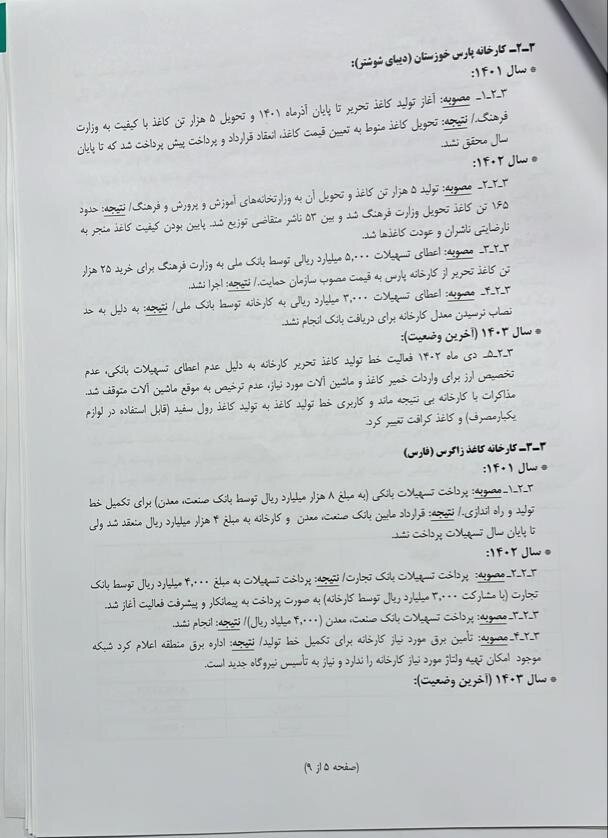 ۳ـ۲ـ کارخانه پارس خوزستان (دیبای شوشتر):
* سال ۱۴۰۱:
۳ـ۲ـ۱ـ مصوبه: آغاز تولید کاغذ تحریر تا پایان آذرماه ۱۴۰۱ و تحویل ۵ هزار تن کاغذ با کیفیت به وزارت
فرهنگ./ نتیجه: تحویل کاغذ منوط به تعیین قیمت کاغذ، انعقاد قرارداد و پرداخت پیش پرداخت شد که تا پایان
سال محقق نشد.
* سال ۱۴۰۲:
۳ـ۲ـ۲ـ مصوبه: تولید ۵ هزار تن کاغذ و تحویل آن به وزارتخانه‌های آموزش و پرورش و فرهنگ/ نتیجه: حدود
۱۶۵ تن کاغذ تحویل وزارت فرهنگ شد و بین ۵۳ ناشر متقاضی توزیع شد. پایین بودن کیفیت کاغذ منجر به
نارضایتی ناشران و عودت کاغذها شد.
۳ـ۲ـ۳ـ مصوبه: اعطای تسهیلات ۵,۰۰۰ میلیارد ریالی توسط بانک ملی به وزارت فرهنگ برای خرید ۲۵ هزار
تن کاغذ تحریر از کارخانه پارس به قیمت مصوب سازمان حمایت./ نتیجه: اجرا نشد.
۳ـ۲ـ۴ـ مصوبه: اعطای تسهیلات ۳,۰۰۰ میلیارد ریالی به کارخانه توسط بانک ملی/ نتیجه: به دلیل به حد
نصاب نرسیدن معدل کارخانه برای دریافت بانک انجام نشد.
* سال ۱۴۰۳ (آخرین وضعیت):
۳ـ۲ـ۵ـ دی ماه ۱۴۰۲ فعالیت خط تولید کاغذ تحریر کارخانه به دلیل عدم اعطای تسهیلات بانکی، عدم
تخصیص ارز برای واردات خمیر کاغذ و ماشین آلات مورد نیاز، عدم ترخیص به موقع ماشین آلات متوقف شد.
مذاکرات با کارخانه بی نتیجه ماند و کاربری خط تولید کاغذ به تولید کاغذ رول سفید (قابل استفاده در لوازم
یکبارمصرف) و کاغذ کرافت تغییر کرد.
۳ـ۳ـ کارخانه کاغذ زاگرس (فارس)
* سال ۱۴۰۱:
۳ـ۲ـ۱ـ مصوبه: پرداخت تسهیلات بانکی (به مبلغ ۸ هزار میلیارد ریال توسط بانک صنعت، معدن) برای تکمیل خط
تولید و راه اندازی./ نتیجه: قرارداد مابین بانک صنعت، معدن و کارخانه به مبلغ ۴ هزار میلیارد ریال منعقد شد ولی
تا پایان سال تسهیلات پرداخت نشد.
* سال ۱۴۰۲:
۳ـ۲ـ۲ـ مصوبه: پرداخت تسهیلات بانک تجارت/ نتیجه: پرداخت تسهیلات به مبلغ ۴,۰۰۰ میلیارد ریال توسط بانک
تجارت (با مشارکت ۳,۰۰۰ میلیارد ریال توسط کارخانه) به صورت پرداخت به پیمانکار و پیشرفت فعالیت آغاز شد.
۳ـ۲ـ۳ـ مصوبه: پرداخت تسهیلات بانک صنعت، معدن (۴,۰۰۰ میلیاد ریال)/ نتیجه: انجام نشد.
۳ـ۲ـ۴ـ مصوبه: تأمین برق مورد نیاز کارخانه برای تکمیل خط تولید/ نتیجه: اداره برق منطقه اعلام کرد شبکه
موجود امکان تهیه ولتاژ مورد نیاز کارخانه را ندارد و نیاز به تأسیس نیروگاه جدید است.
* سال ۱۴۰۳ (آخرین وضعیت):
(صفحه ۵ از ۹)